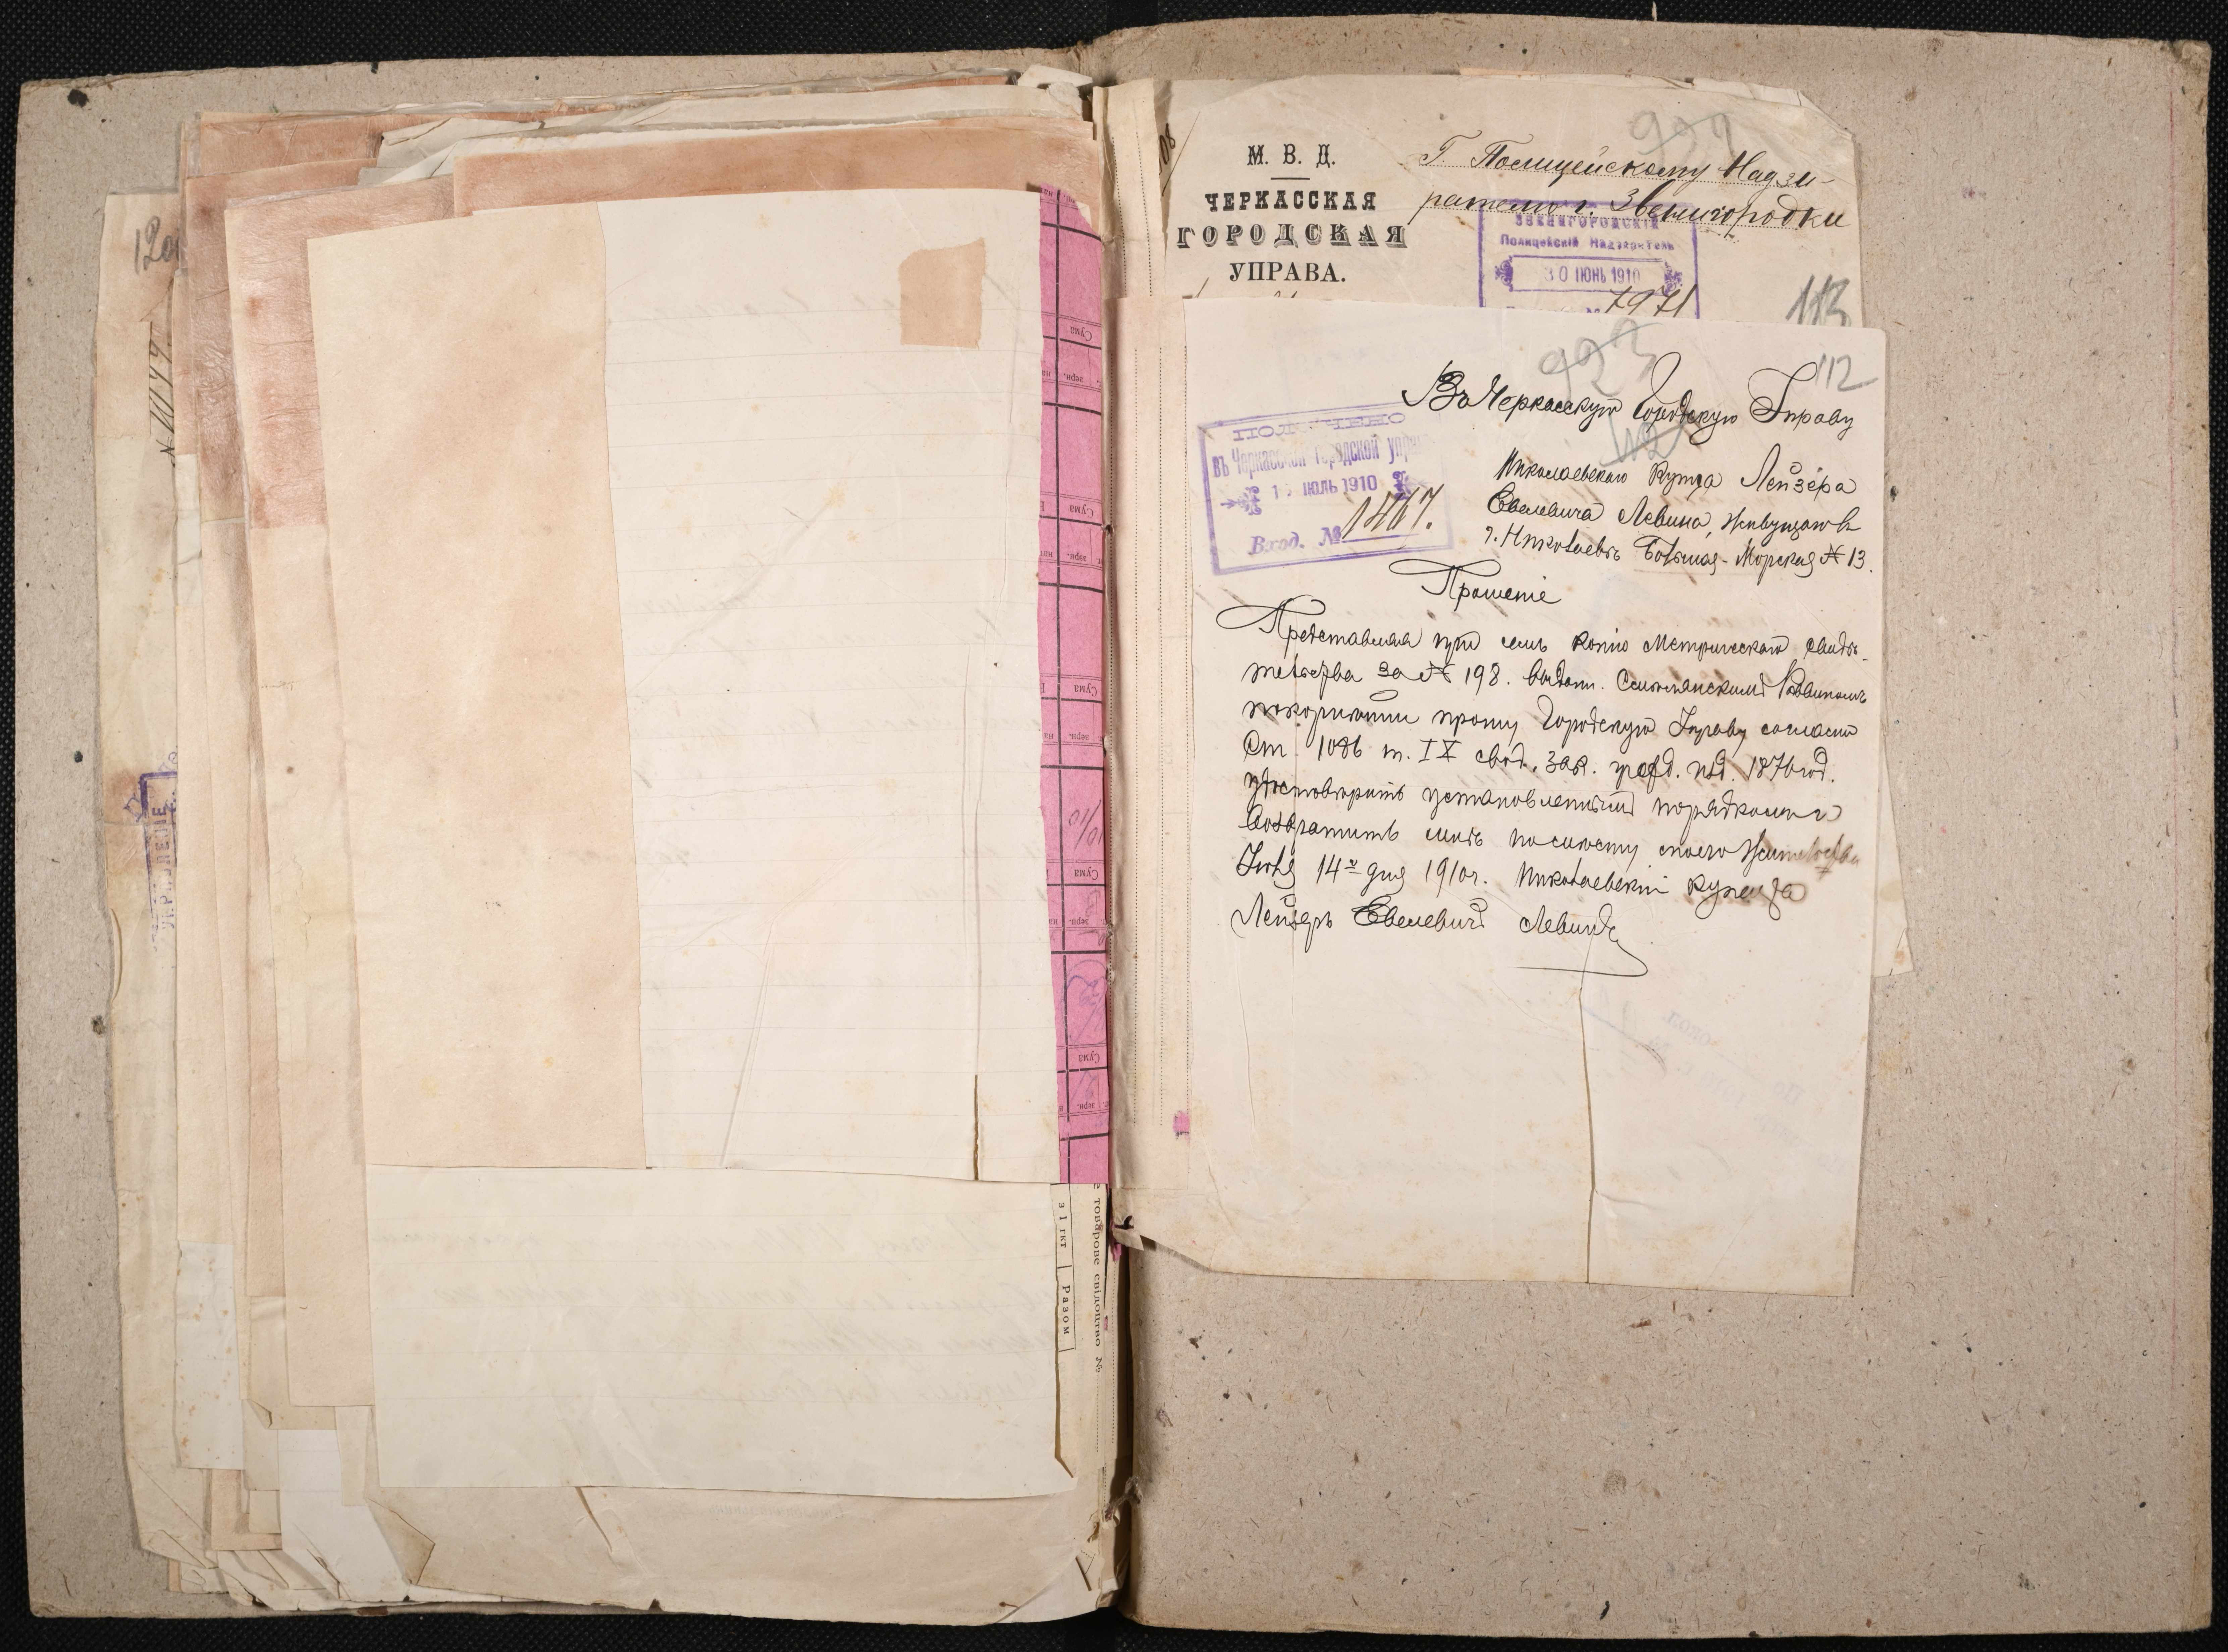 120
№ 11177
УКРПЛЕНІЕ
М. В. Д.
ЧЕРКАССКАЯ
ГОРОДСКАЯ
УПРАВА.
Г. Полицейскому Надзи-
рателю г. Звенигородки
ЗВЕНИГОРОДСКІЙ
Полицейскій Надзиратель
30 ІЮНЬ 1910
7971
113
112
Въ Черкасскую Городскую Управу
ПОЛУЧЕНО
въ Черкасской городской упр
ІЮЛЬ 1910
Вход. № 1467.
Николаевскаго Купца Лейзера
Евелевича Левина, живущаго въ
г. Николаевѣ Большая-Морская № 13.
Прошеніе
Представляя при семъ копію Метрическаго свидѣ-
тельства за № 198. выдан. Равиномъ
покорнѣйше прошу Городскую Управу согласно
Ст. 1086 т. IX свод. зак. гражд. изд. 1876 год.
удостовѣрить установленнымъ порядкомъ и
возвратить мнѣ по мѣсту моего жительства
Іюля 14го дня 1910 г. Николаевскій купецъ
Лейзеръ Евелевичъ Левинъ
Сума
зерн.
Сума
зерн.
Сума
зерн.
10/10
Сума
зерн.
Сума
зерн.
з 1 гкт
Разом
товарове свідоцтво №